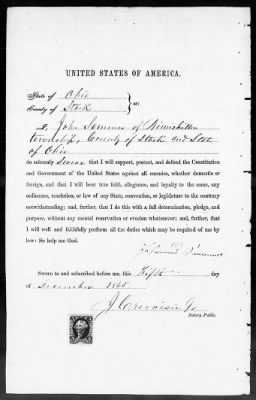 UNITED STATES OF AMERICA.
State of Ohio
County of Stark } ss:
I, John Sommer of Nimishillen
township, County of Stark and State
of Ohio
do solemnly swear, that I will support, protect, and defend the Constitution
and Government of the United States against all enemies, whether domestic or
foreign, and that I will bear true faith, allegiance, and loyalty to the same, any
ordinance, resolution, or law of any State, convention, or legislature to the contrary
notwithstanding; and, further, that I do this with a full determination, pledge, and
purpose, without any mental reservation or evasion whatsoever; and, further, that
I will well and faithfully perform all the duties which may be required of me by
law: So help me God.
Sworn to and subscribed before me, this Fifth day
of December 1865
Notary Public.